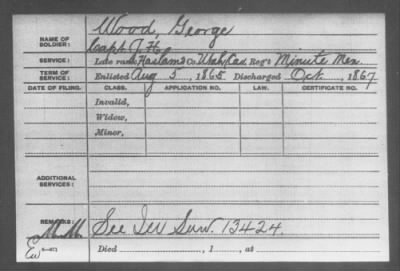 NAME OF SOLDIER: Wood, George
Capt. J. H.
SERVICE: Late rank, Haslam's Co. Utah Cav. Reg't Minute Men
TERM OF SERVICE: Enlisted Aug 5, 1865 Discharged Oct, 1867
DATE OF FILING. CLASS. APPLICATION NO. LAW. CERTIFICATE NO.
Invalid,
Widow,
Minor,
ADDITIONAL SERVICES:
REMARKS: See Ind Surv. 13424.
Died , 1 , at